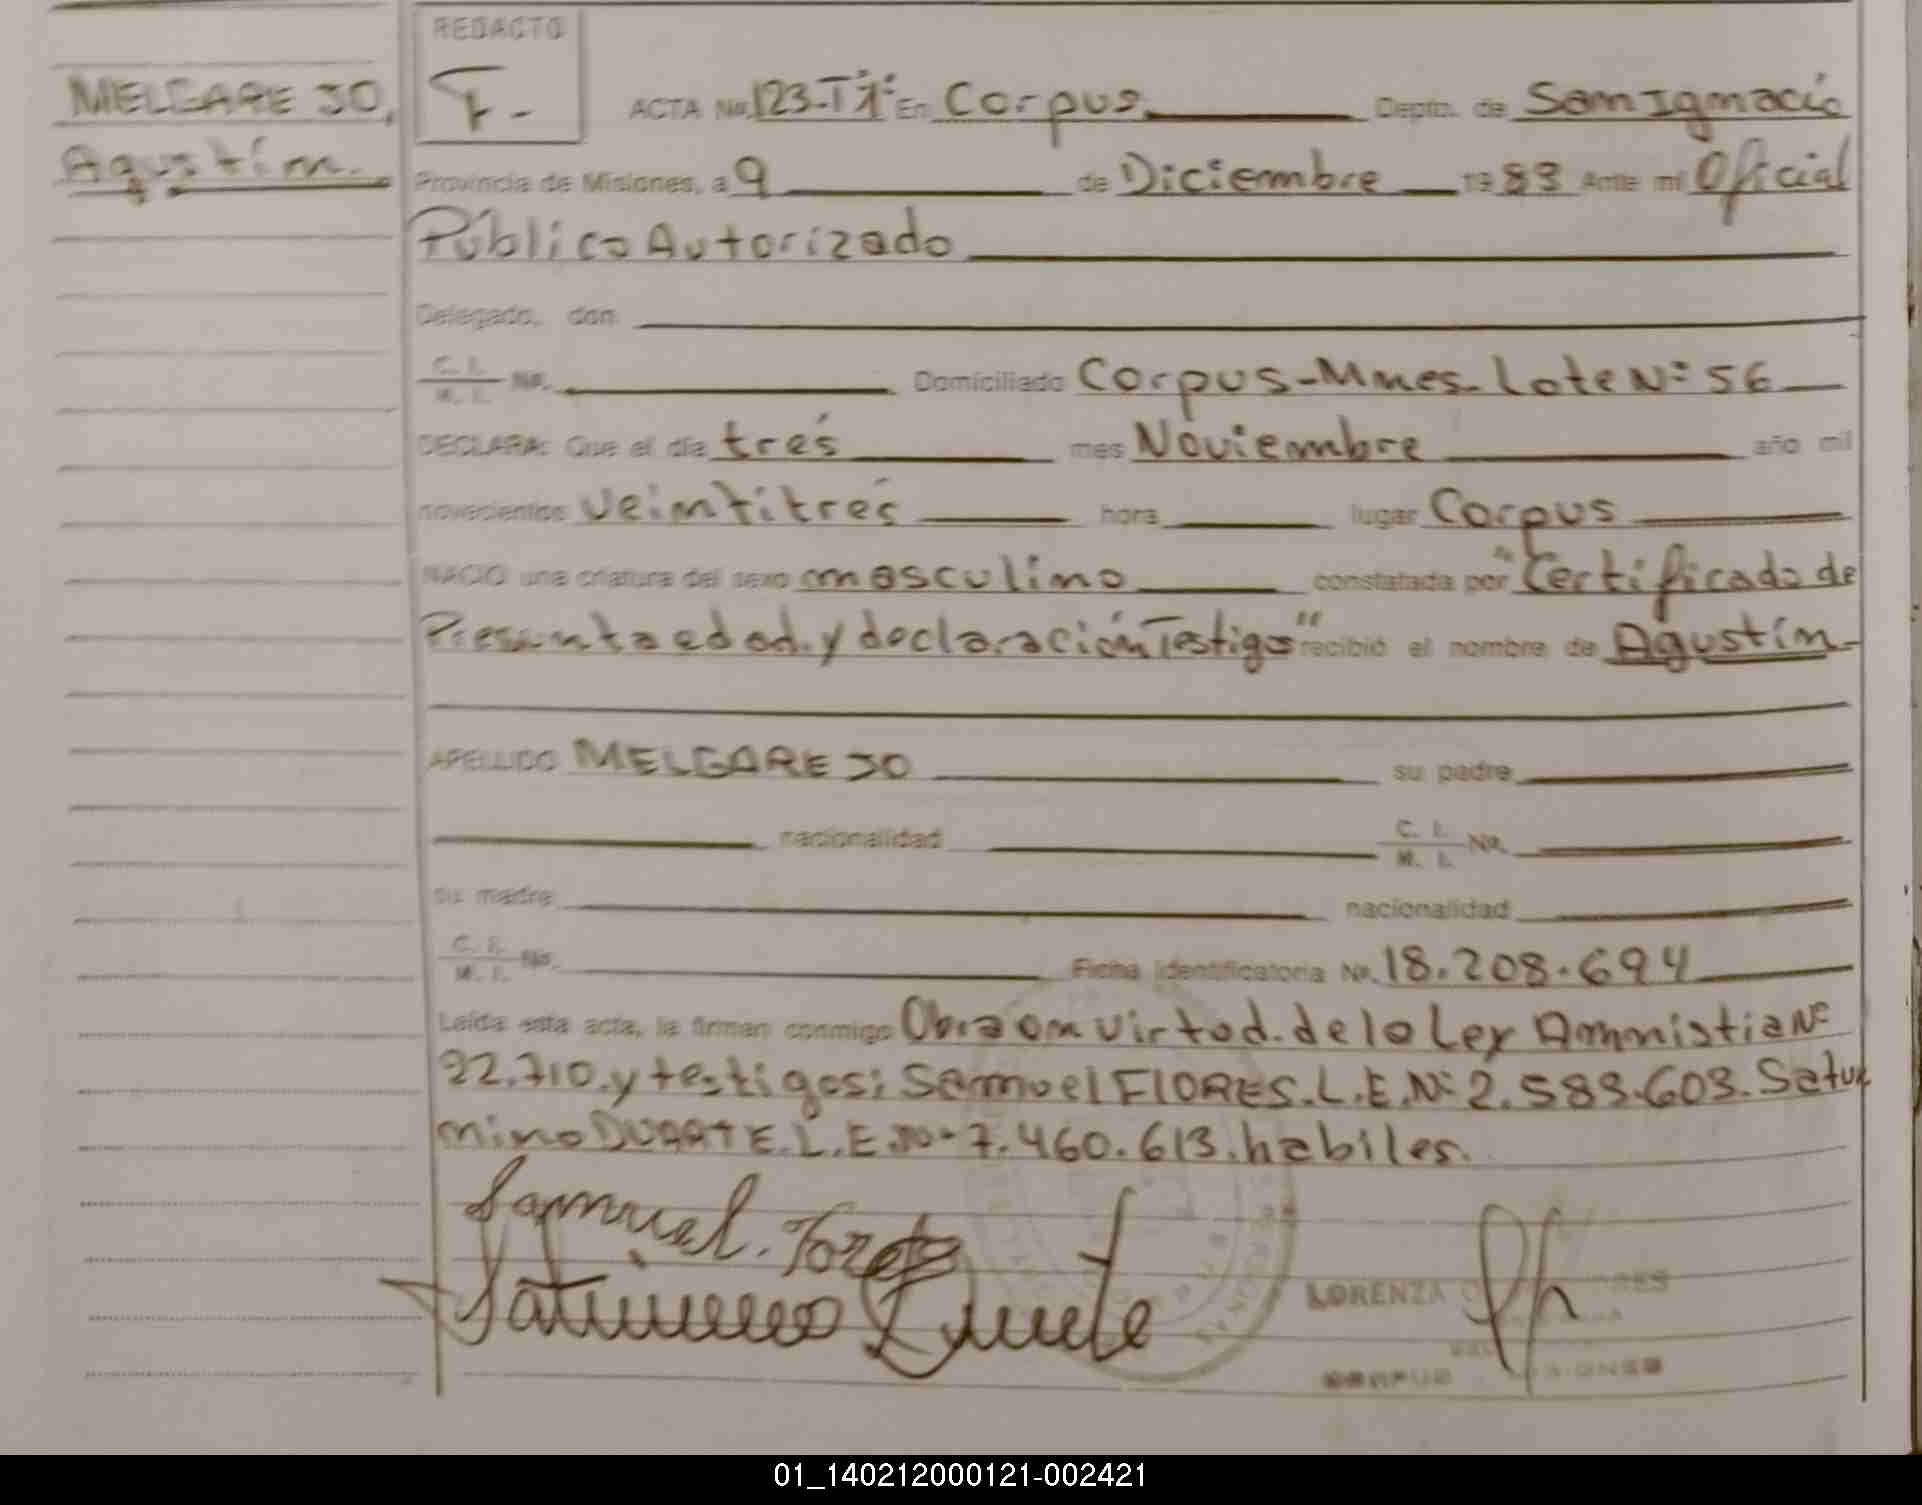 REDACTO
MELGAREJO,
Agustín.
F.-
ACTA No. 123-T1° En Corpus Depto. de San Ignacio
Provincia de Misiones, a 9 de Diciembre 19 83 Ante mi Oficial
Público Autorizado
Delegado, don
C. I.
M. I. No. Domiciliado Corpus-Mnes. Lote N° 56
DECLARA: Que el día tres mes Noviembre año mil
novecientos veintitrés hora lugar Corpus
NACIO una criatura del sexo masculino constatada por "Certificado de
Presunta edad. y declaración Testigos" recibió el nombre de Agustín-
APELLIDO MELGAREJO su padre
nacionalidad C. I.
M. I. No.
su madre nacionalidad
C. I.
M. I. No. Ficha Identificatoria No. 18.208.694
Leída esta acta, la firman conmigo Obra en virtud. de la Ley Amnistia N°
22.710. y testigos; Samuel FLORES. L.E.N° 2.583.603. Satur
nino DUARTE. L.E.N° 7.460.613. habiles.
Samuel. Flores
Saturnino Duarte
LORENZA
CORPUS MISIONES
01_140212000121-002421